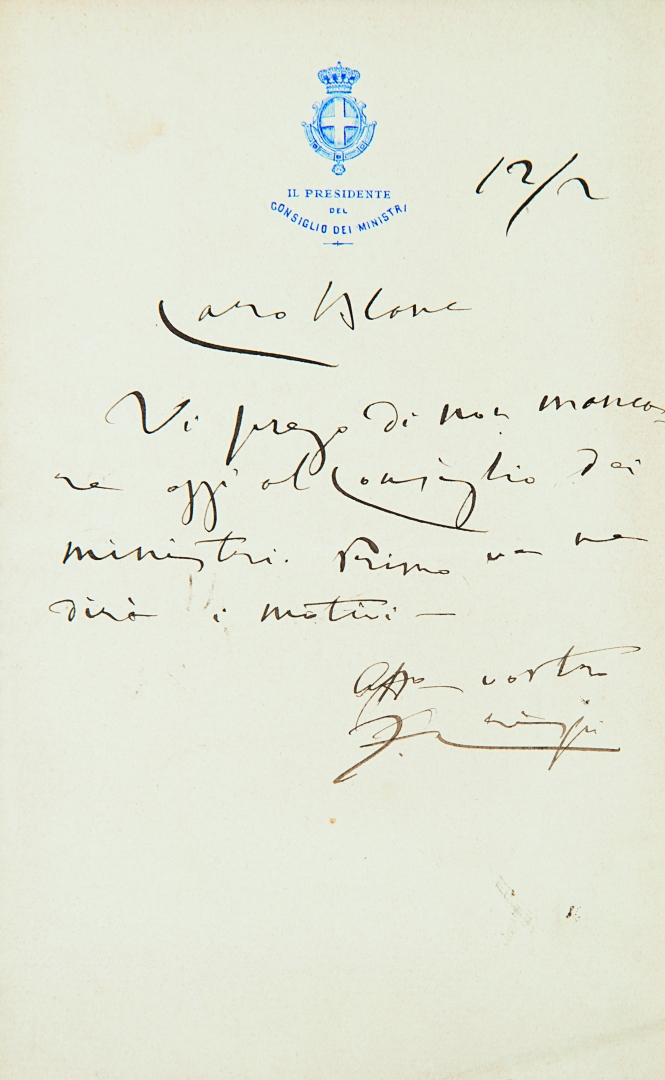 IL PRESIDENTE
DEL
CONSIGLIO DEI MINISTRI
12/2
Caro Blanc
Vi prego di non manca-
re oggi al Consiglio dei
ministri. Primo ve ne
dirà i motivi —
Affo vostro
F. Crispi